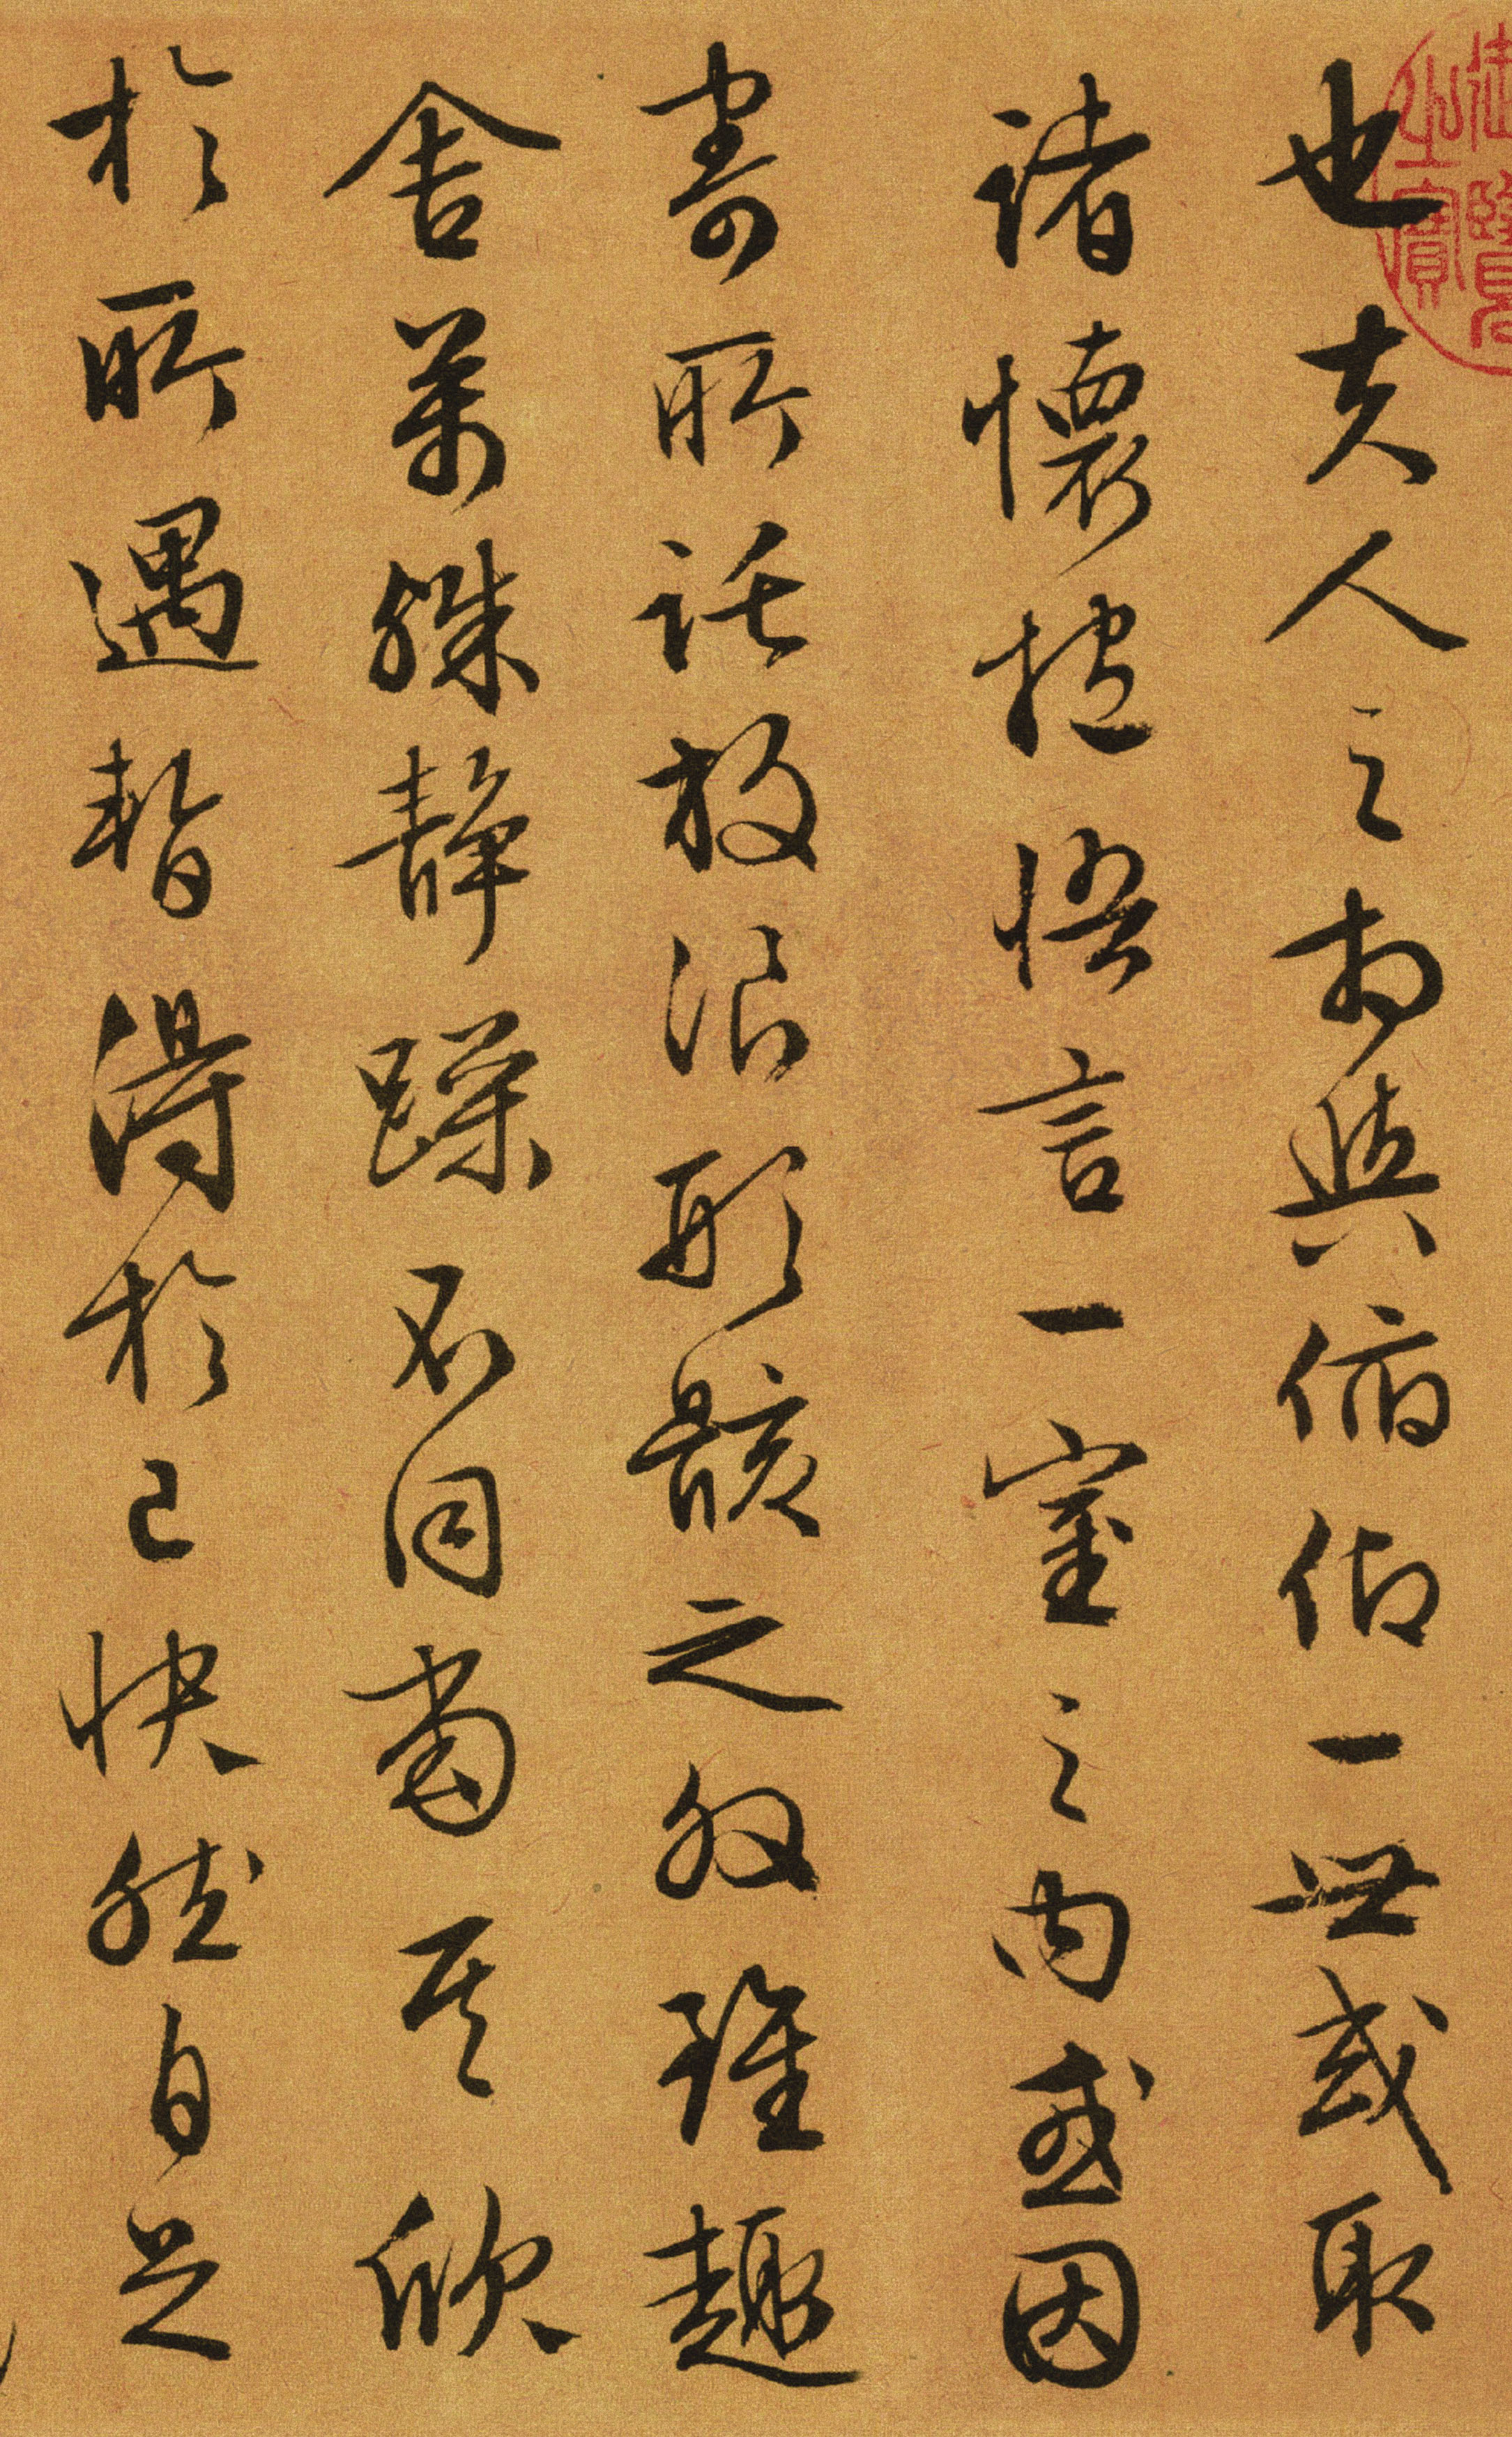 也夫人之相與俯仰一世或取
諸懷抱悟言一室之內或因
寄所託放浪形骸之外雖趣
舍萬殊靜躁不同當其欣
於所遇暫得於己快然自足
御覽之寶